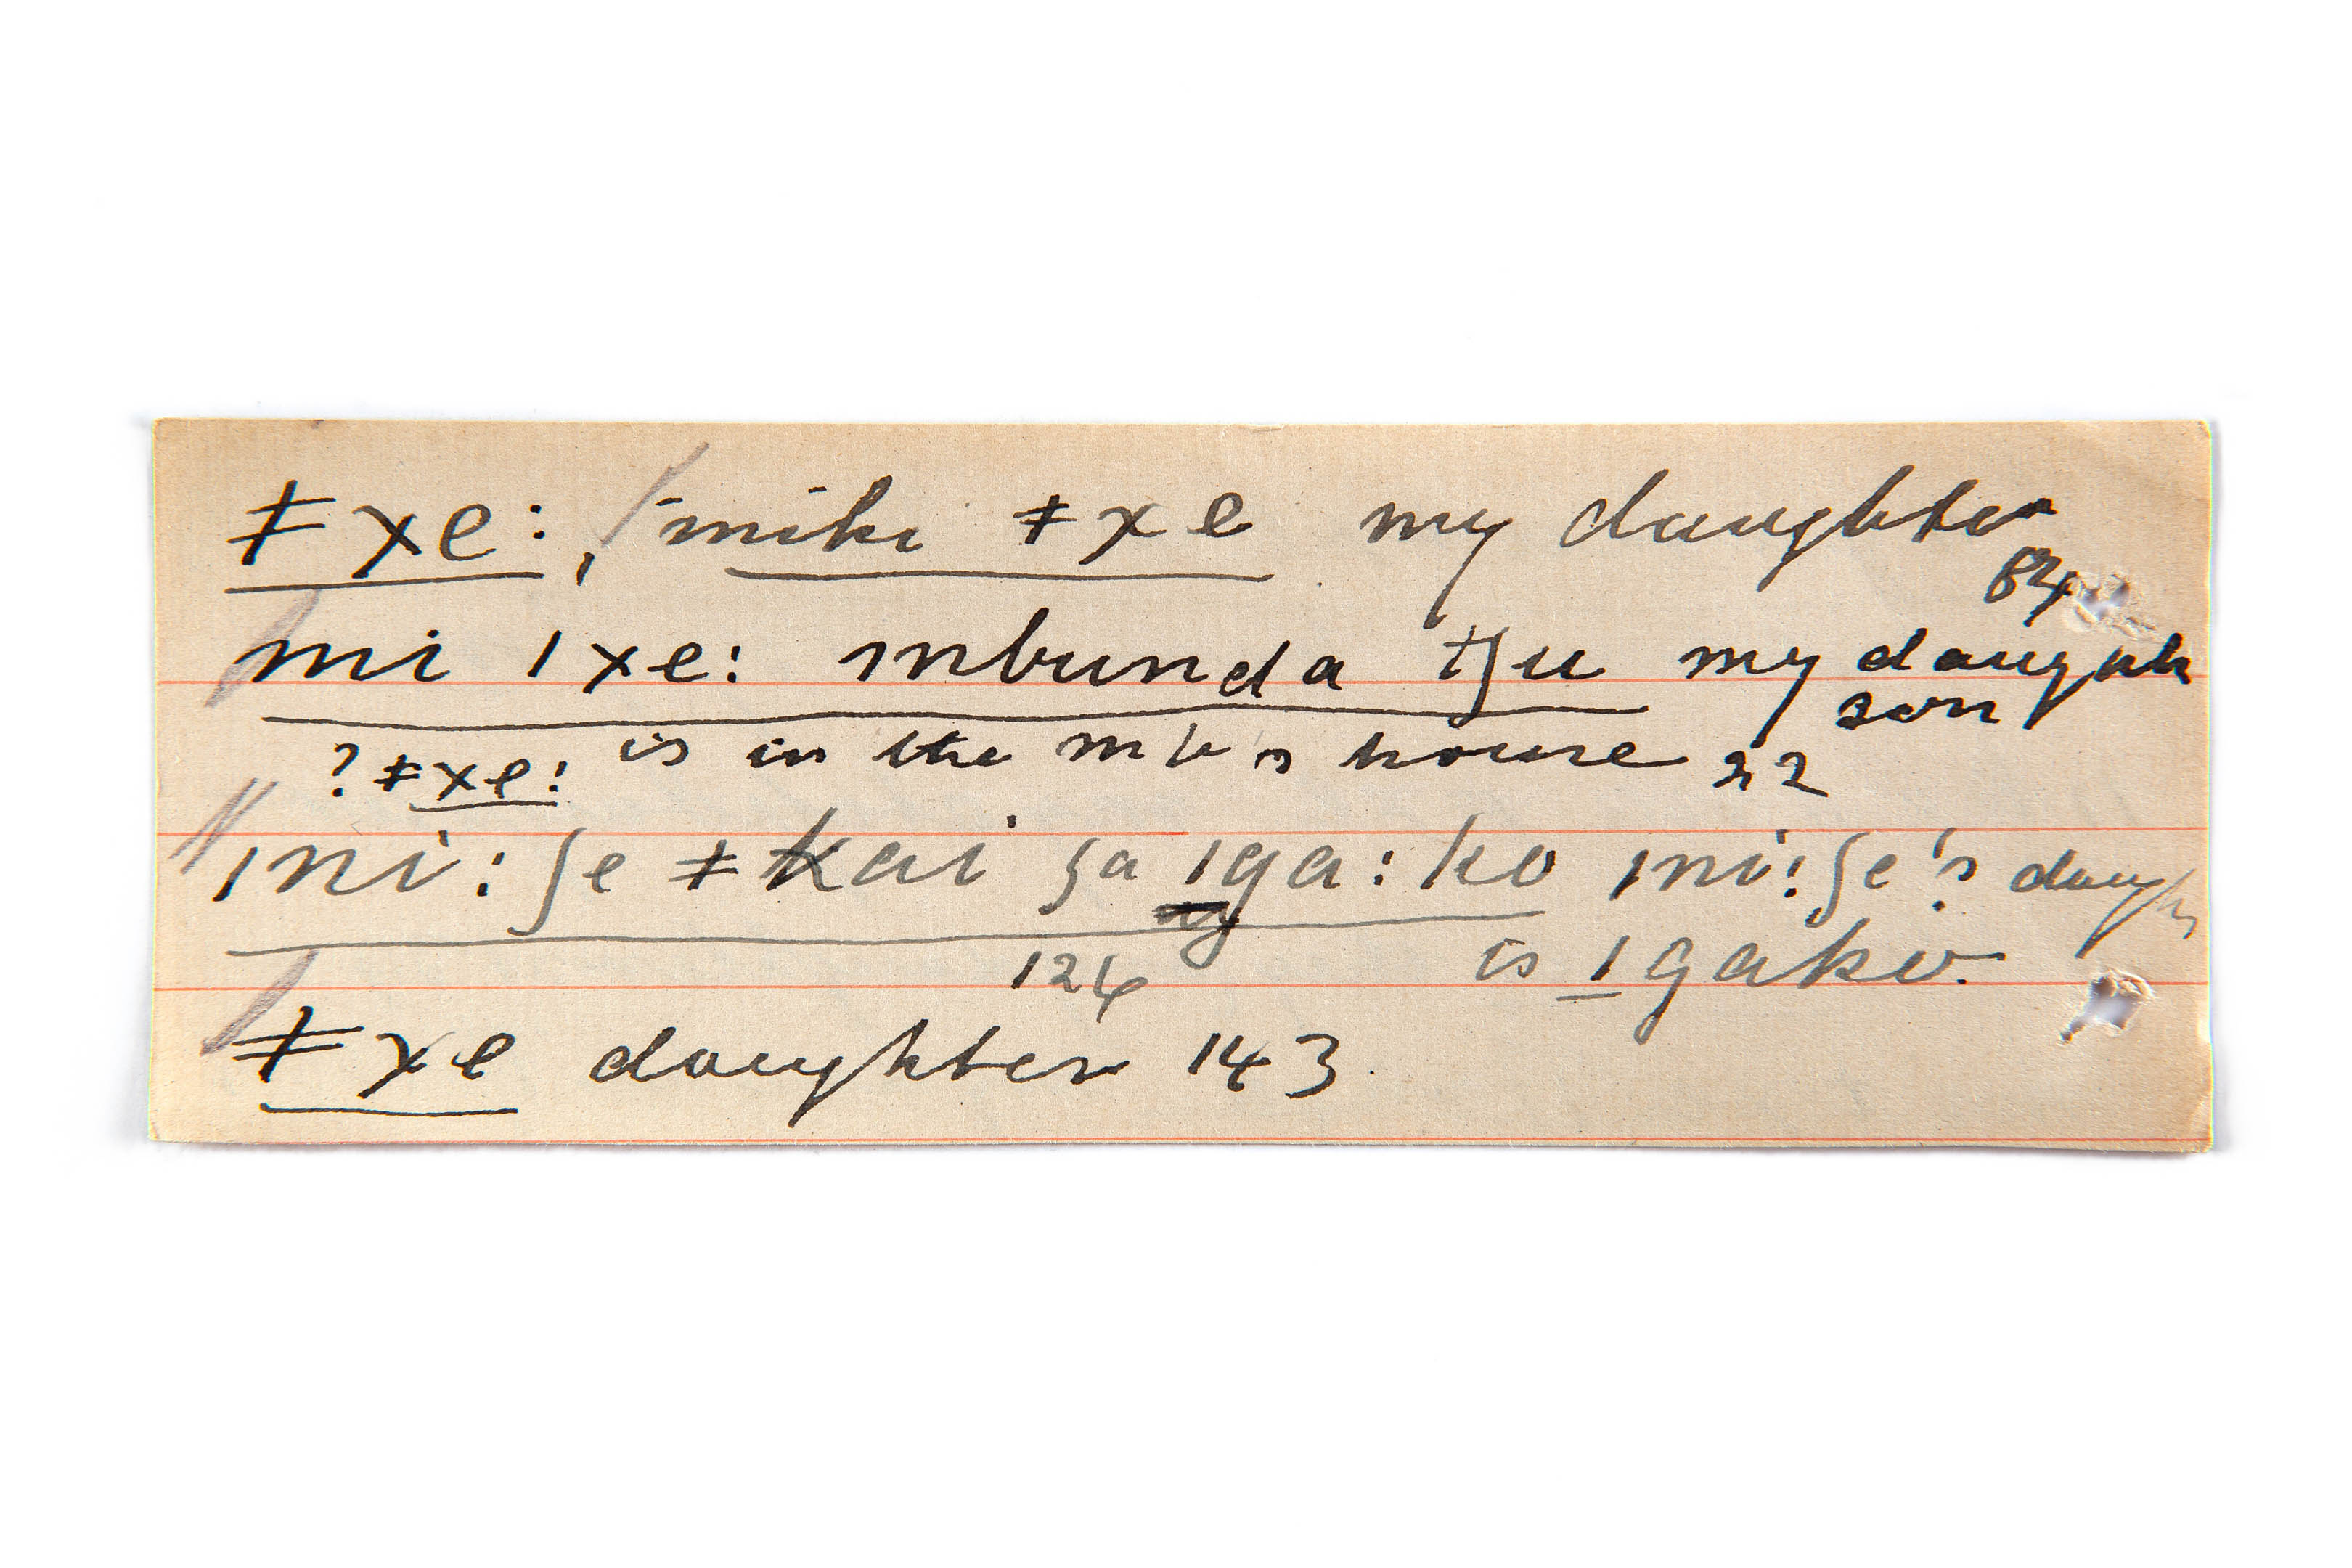 ǂxe:, miki ǂxe my daughter
84
mi ǀxe: mbunda tʃu my daughter
son
?ǂxe: is in the mb's house 22
ǀni:ʃe ǂkai ʃa ǀga:ko ǀni:ʃe's daughter
126 is ǀgako.
ǂxe daughter 143.